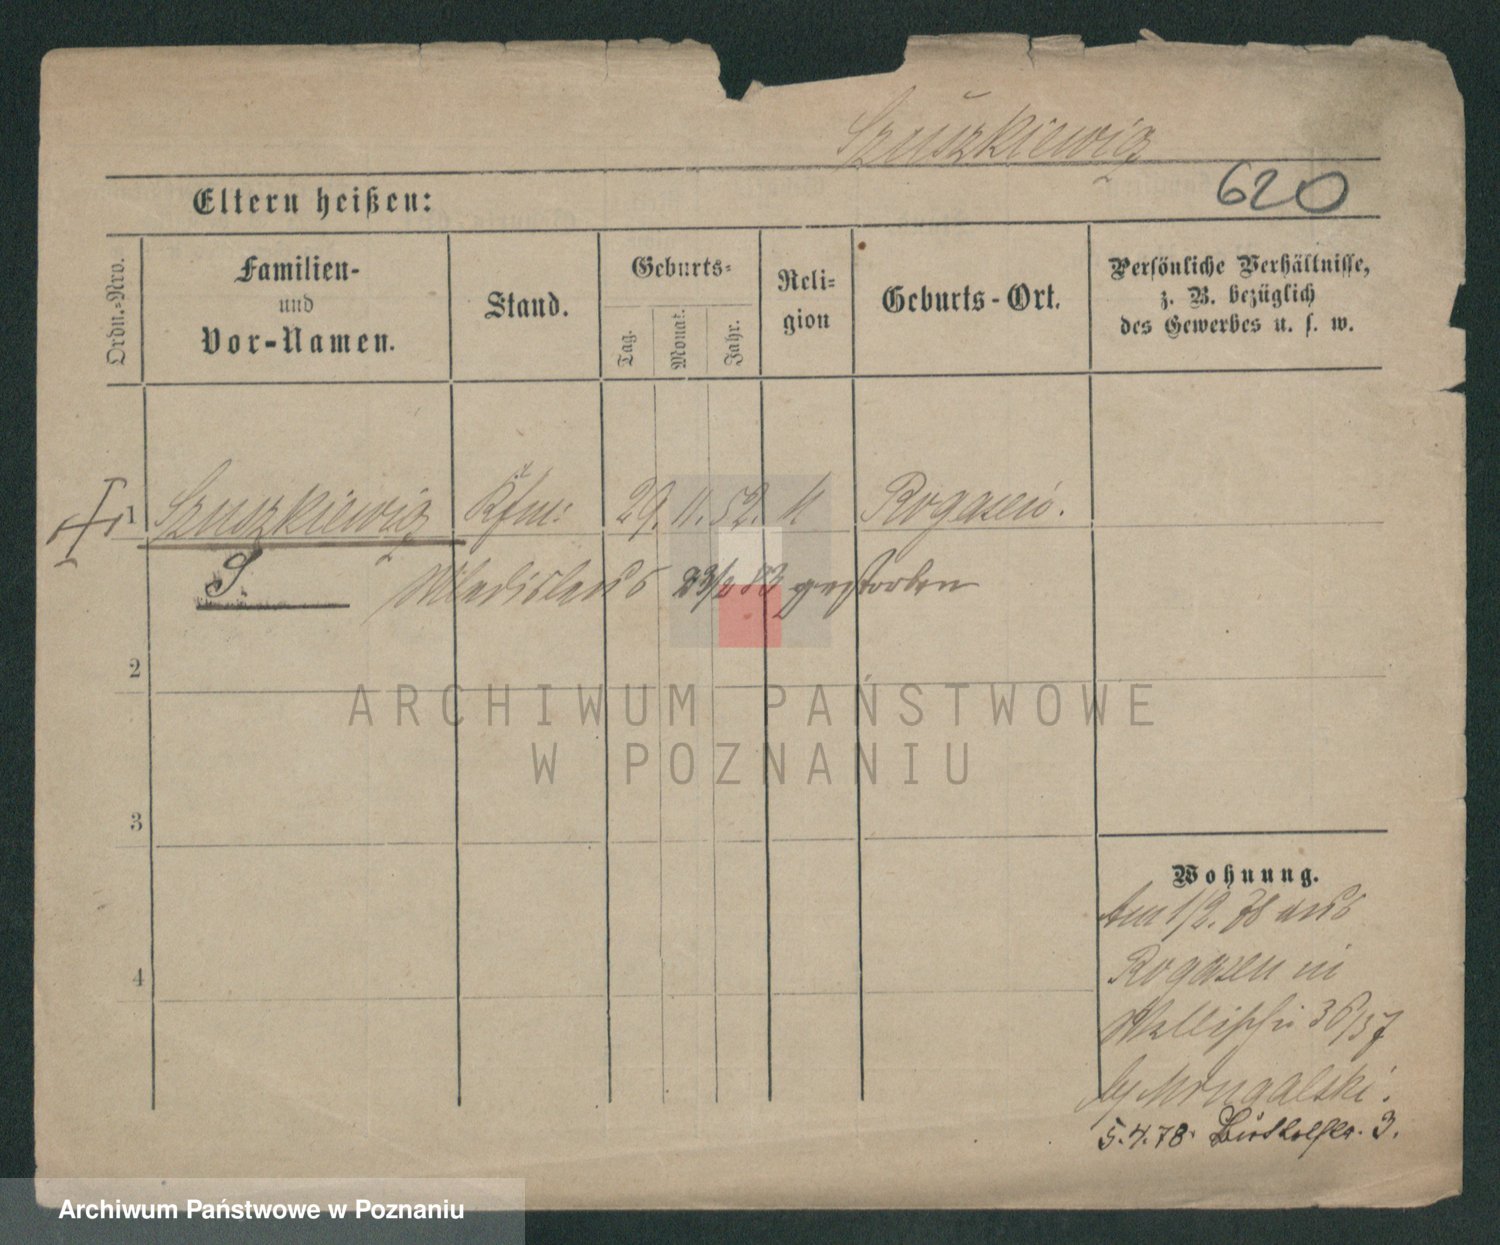 Szuszkiewicz
620
Eltern heißen:
Ordn.-Nro.
Familien-
und
Vor-Namen.
Stand.
Geburts-
Tag.
Monat.
Jahr.
Reli-
gion
Geburts-Ort.
Persönliche Verhältnisse,
z. B. bezüglich
des Gewerbes u. s. w.
1 Szuszkiewicz Kfm: 29. 11. 52. k Rogasen.
S. Wladislaus gestorben
2
3
4
Wohnung.
Am 1/2. 78 aus
Rogasen in
Wallischei 36/37
by
5.4.78. 3.
ARCHIWUM PAŃSTWOWE
W POZNANIU
Archiwum Państwowe w Poznaniu